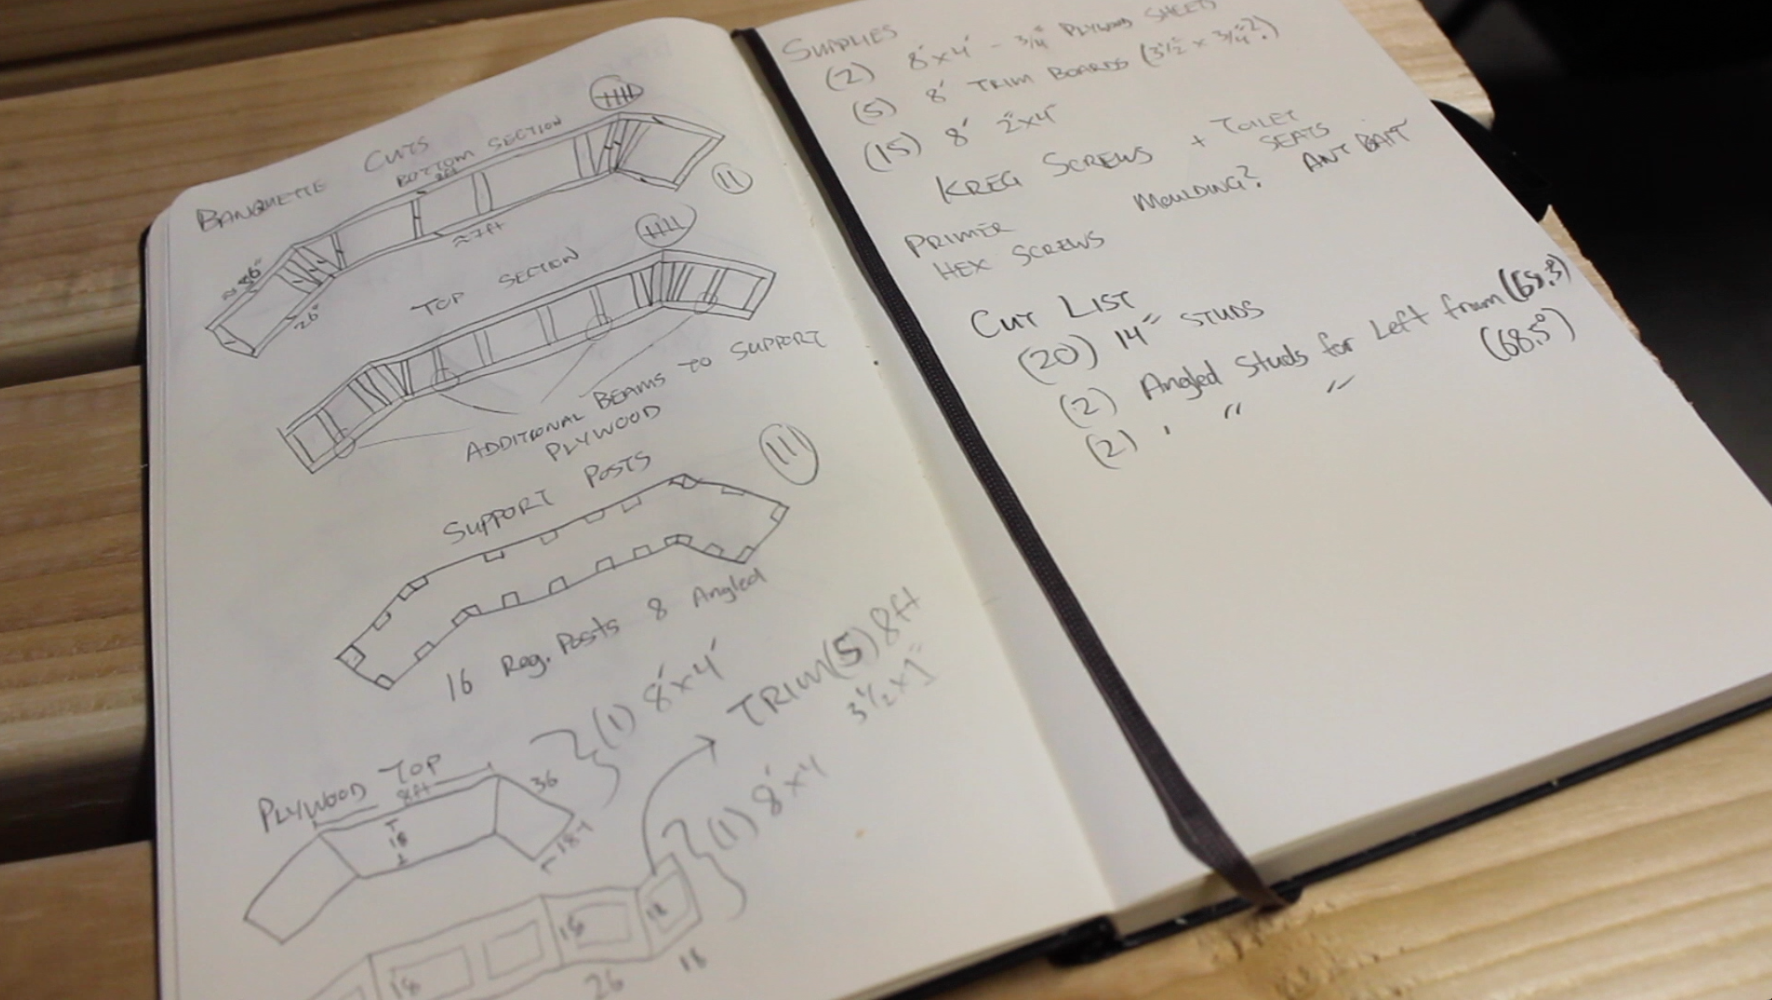 BANQUETTE CUTS
BOTTOM SECTION
8ft
≈7ft
≈36"
26"
11
TOP SECTION
ADDITIONAL BEAMS TO SUPPORT
PLYWOOD
SUPPORT POSTS
16 Reg. Posts 8 Angled
PLYWOOD TOP
8ft
18
36
18
} (1) 8'x4'
TRIM (5) 8ft
3½ x 1"
} (1) 8'x4'
18
18
18
26
18
SUPPLIES
(2) 8'x4' - 3/4" PLYWOOD SHEETS
(5) 8' TRIM BOARDS (3½" x 3/4"?)
(15) 8' 2"x4"
KREG SCREWS + TOILET
SEATS
MOULDING? ANT BAIT
PRIMER
HEX SCREWS
CUT LIST
(20) 14" STUDS
(2) Angled Studs for Left from (68.3)
(2) " " " (68.5°)